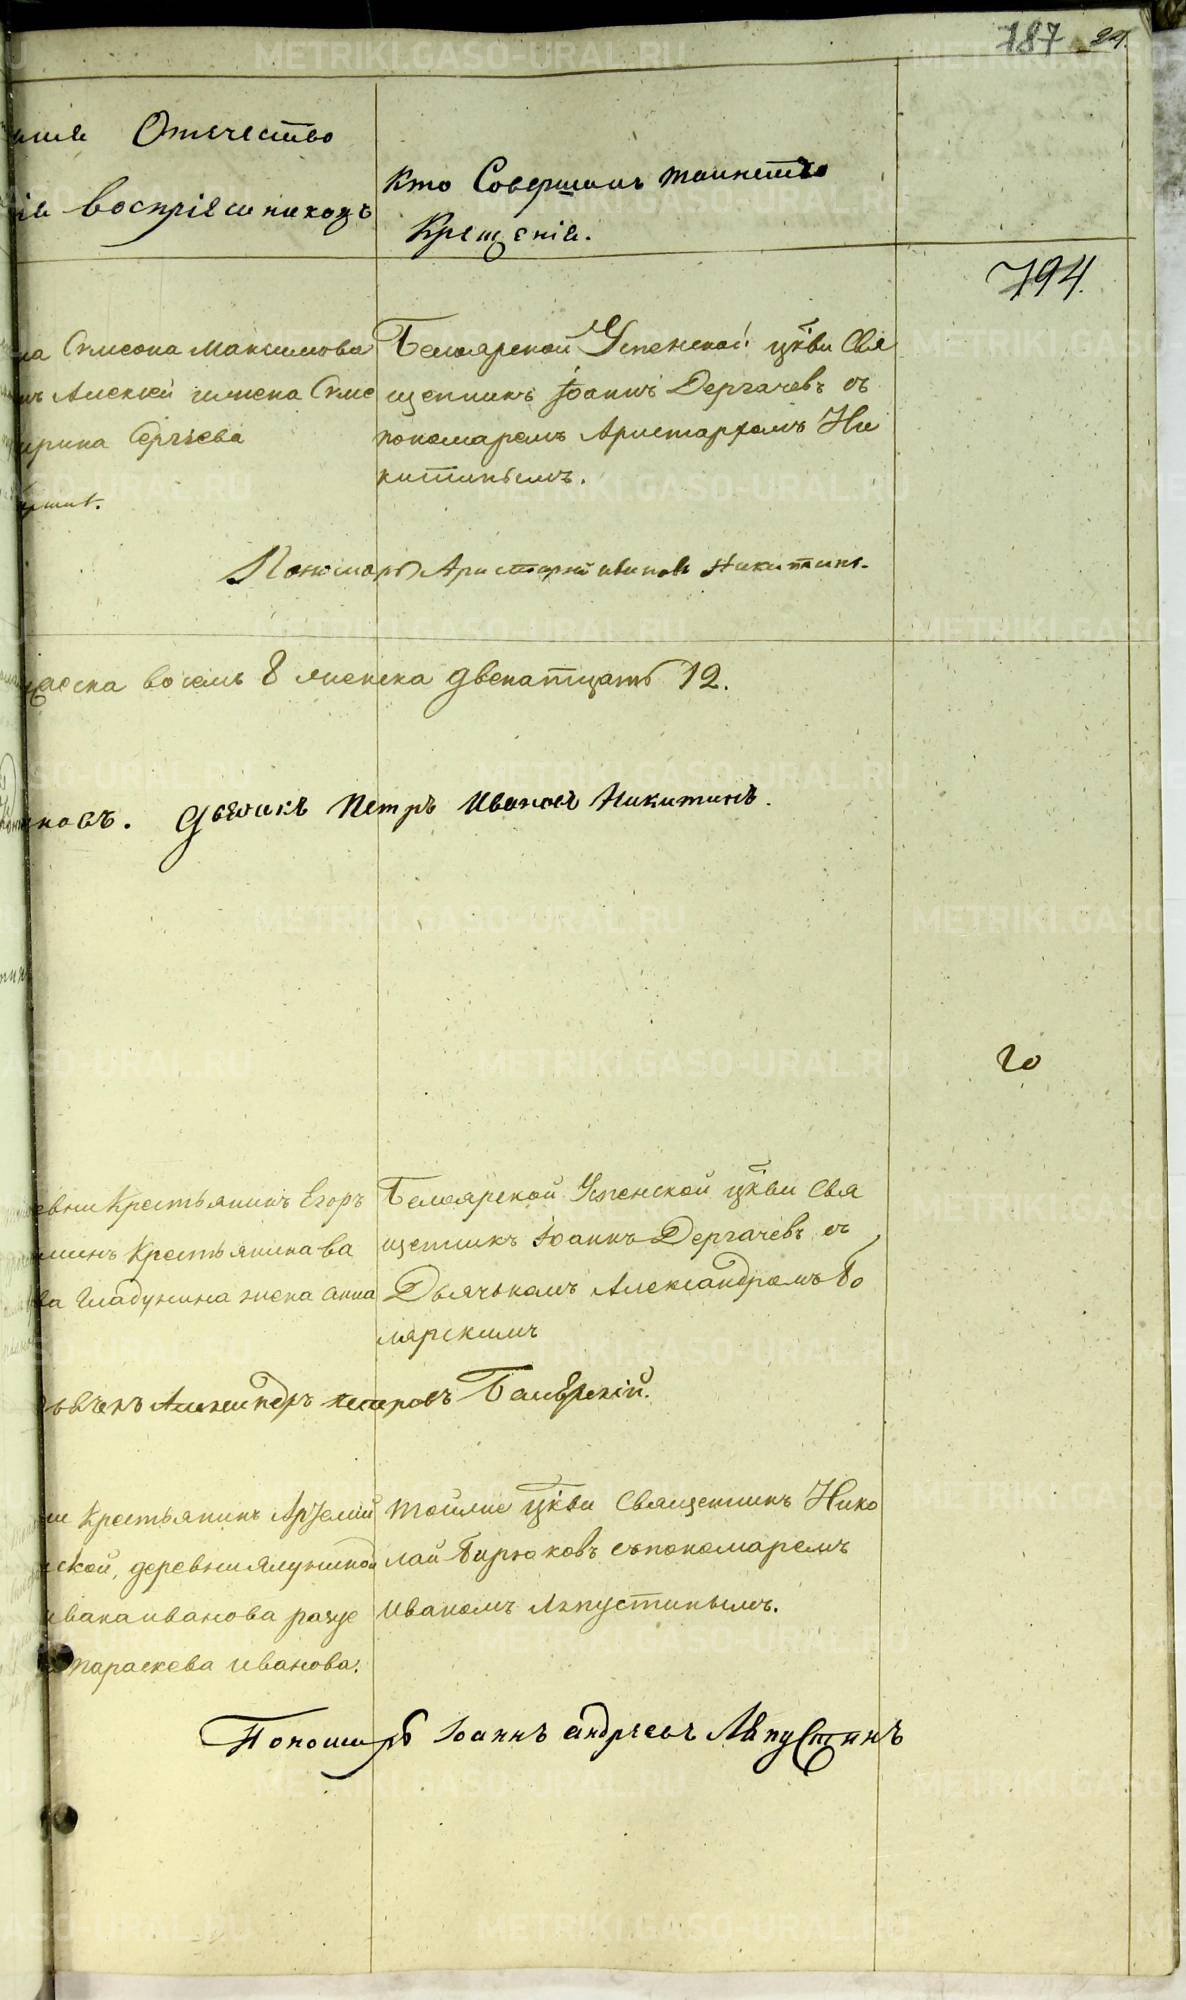 187 24.
Отечество
воспріемниковъ
Кто Совершалъ таинство
Крещенія.
794.
Симеона Максимова
Алексей Симе
Сергіева
Белоярской Успенской цкви Свя
щенникъ Іоаннъ Дергачевъ съ
пономаремъ Аристархомъ Ни
китинымъ.
Пономарь Аристархъ Ивановъ Никитинъ.
восемь 8 женска двенатцать 12.
Дьячикъ Петръ Ивановъ Никитинъ.
20
Крестьянинъ Егоръ
Крестьянина Ва
Гладунина жена Анна
Белоярской Успенской цкви Свя
щенникъ Іоаннъ Дергачевъ съ
Дьячькомъ Александромъ Бо
лярскимъ
Александръ Петровъ Болярскій.
Крестьянинъ Артемій
деревни Ялуниной
Ивана Иванова
Параскева Иванова.
тойже цкви Священникъ Нико
лай Бирюковъ съ пономаремъ
Иваномъ Лапустинымъ.
Пономарь Іоаннъ Андреевъ Лапустинъ
METRIKI.GASO-URAL.RU